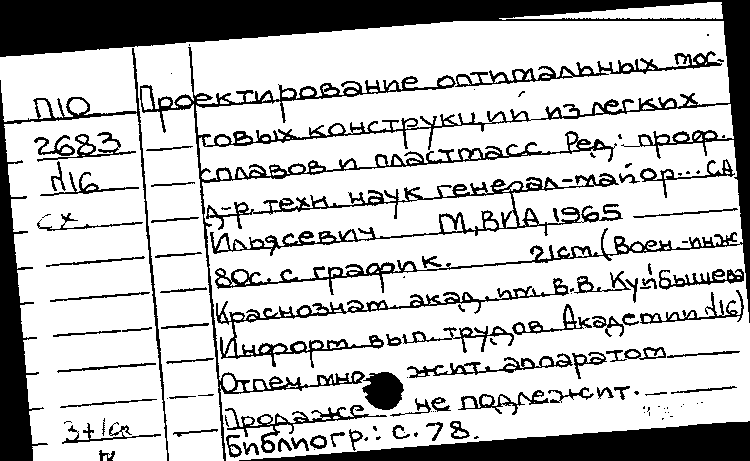 П10
2683
№16
сх.
Проектирование оптимальных мос-
товых конструкций из легких
сплавов и пластмасс. Ред.: проф.
д-р. техн. наук генерал-майор... С.А.
Ильясевич. М., ВИА, 1965
80с. с график. 21см. (Воен.-инж.
Краснознам. акад. им. В.В. Куйбышева
Информ. вып. трудов Академии №16)
Отпеч. мно- жит. аппаратом
Продаже не подлежит.
Библиогр.: с. 78.
3+1сл